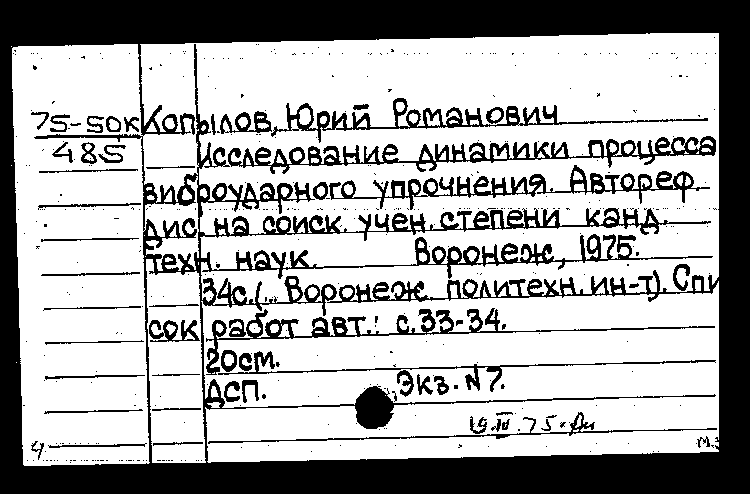 75-50к Копылов, Юрий Романович
485 Исследование динамики процесса
виброударного упрочнения. Автореф.
дис. на соиск. учен. степени канд.
техн. наук. Воронеж, 1975.
34с.(... Воронеж. политехн. ин-т). Спи
сок работ авт.: с.33-34.
20см.
ДСП. Экз. №7.
19.III.75.
4